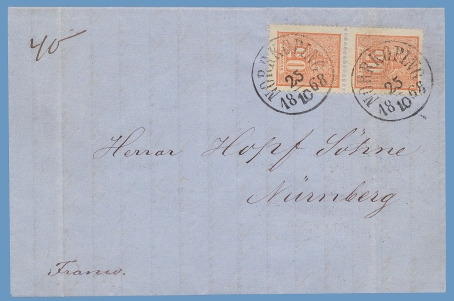 40
NORRKÖPING
25
10
1868
NORRKÖPING
25
10
1868
Herrar Hopf Söhne
Nürnberg
Franco.